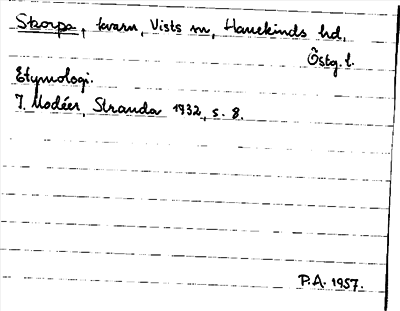 Skorpa, kvarn, Vists sn, Hanekinds hd,
Östg. l.
Etymologi.
I. Modéer, Stranda 1932, s. 8.
P.A. 1957.